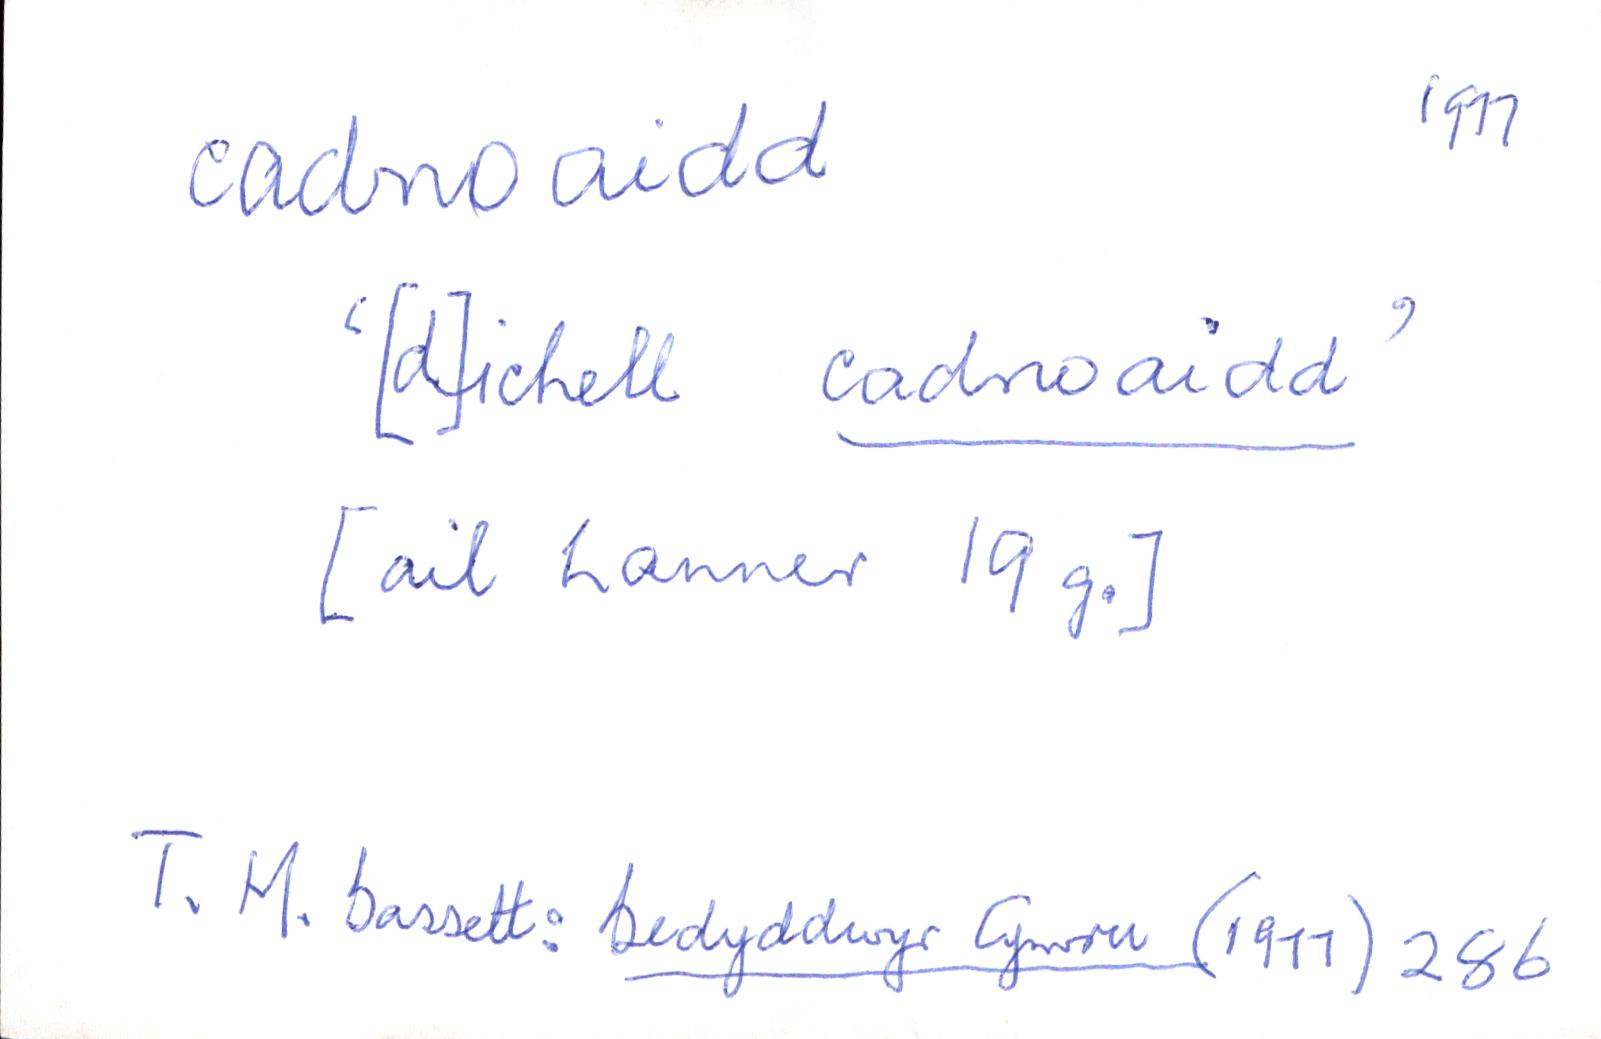 cadnoaidd 1977
‘[d]ichell cadnoaidd’
[ail hanner 19 g.]
T. M. Bassett: Bedyddwyr Cymru (1977) 286